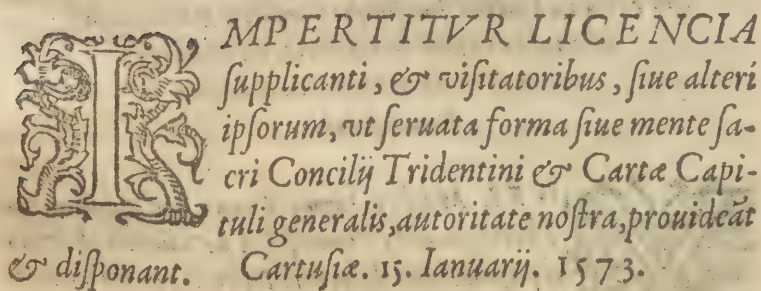 IMPERTITVR LICENCIA
ſupplicanti, & viſitatoribus, ſiue alteri
ipſorum, vt ſeruata forma ſiue mente ſa-
cri Concilij Tridentini & Cartæ Capi-
tuli generalis, autoritate noſtra, prouideāt
& diſponant. Cartuſiæ. 15. Ianuarij. 1573.